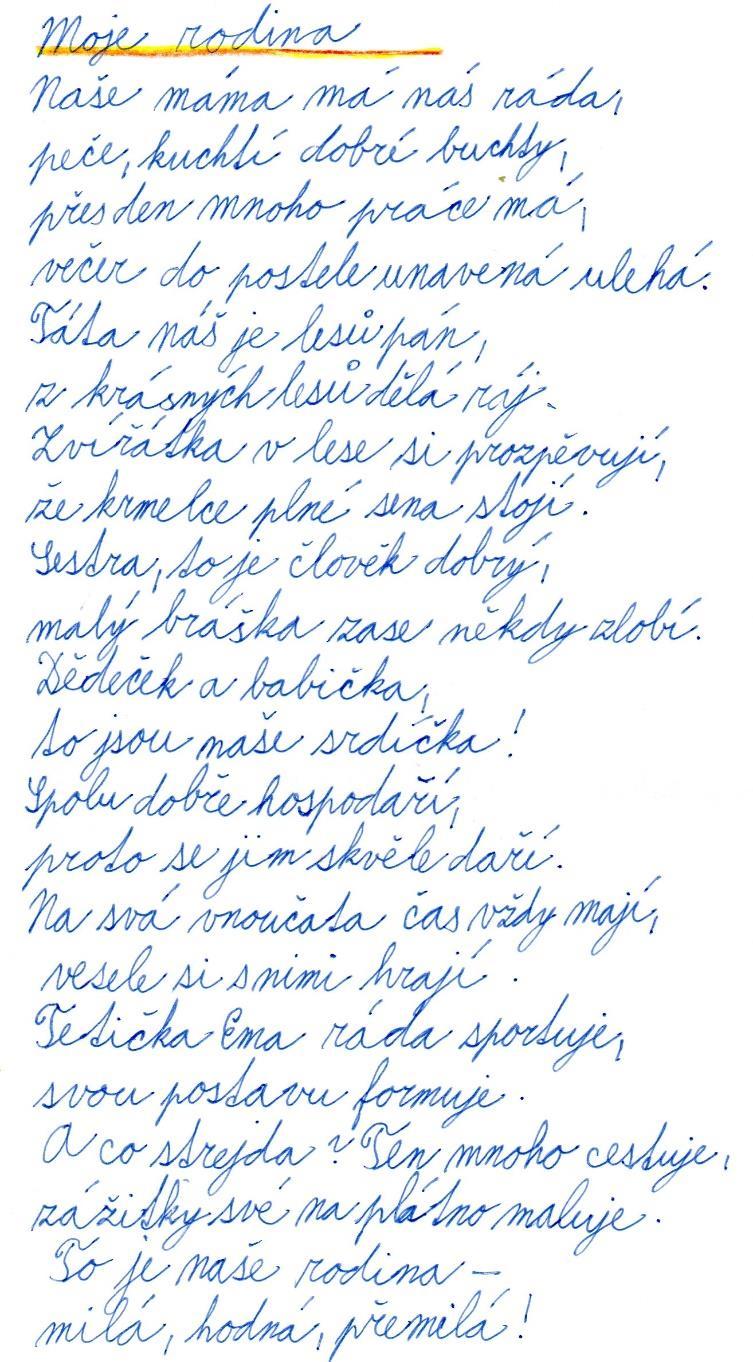 Moje rodina
Naše máma má nás ráda,
peče, kuchtí dobré buchty,
přes den mnoho práce má,
večer do postele unavená ulehá.
Táta náš je lesů pán,
z krásných lesů dělá ráj.
Zvířátka v lese si prozpěvují,
že krmelce plné sena stojí.
Sestra, to je člověk dobrý,
malý bráška zase někdy zlobí.
Dědeček a babička,
to jsou naše srdíčka!
Spolu dobře hospodaří,
proto se jim skvěle daří.
Na svá vnoučata čas vždy mají,
vesele si s nimi hrají.
Tetička Ema ráda sportuje,
svou postavu formuje.
A co strejda? Ten mnoho cestuje,
zážitky své na plátno maluje.
To je naše rodina –
milá, hodná, přemilá!